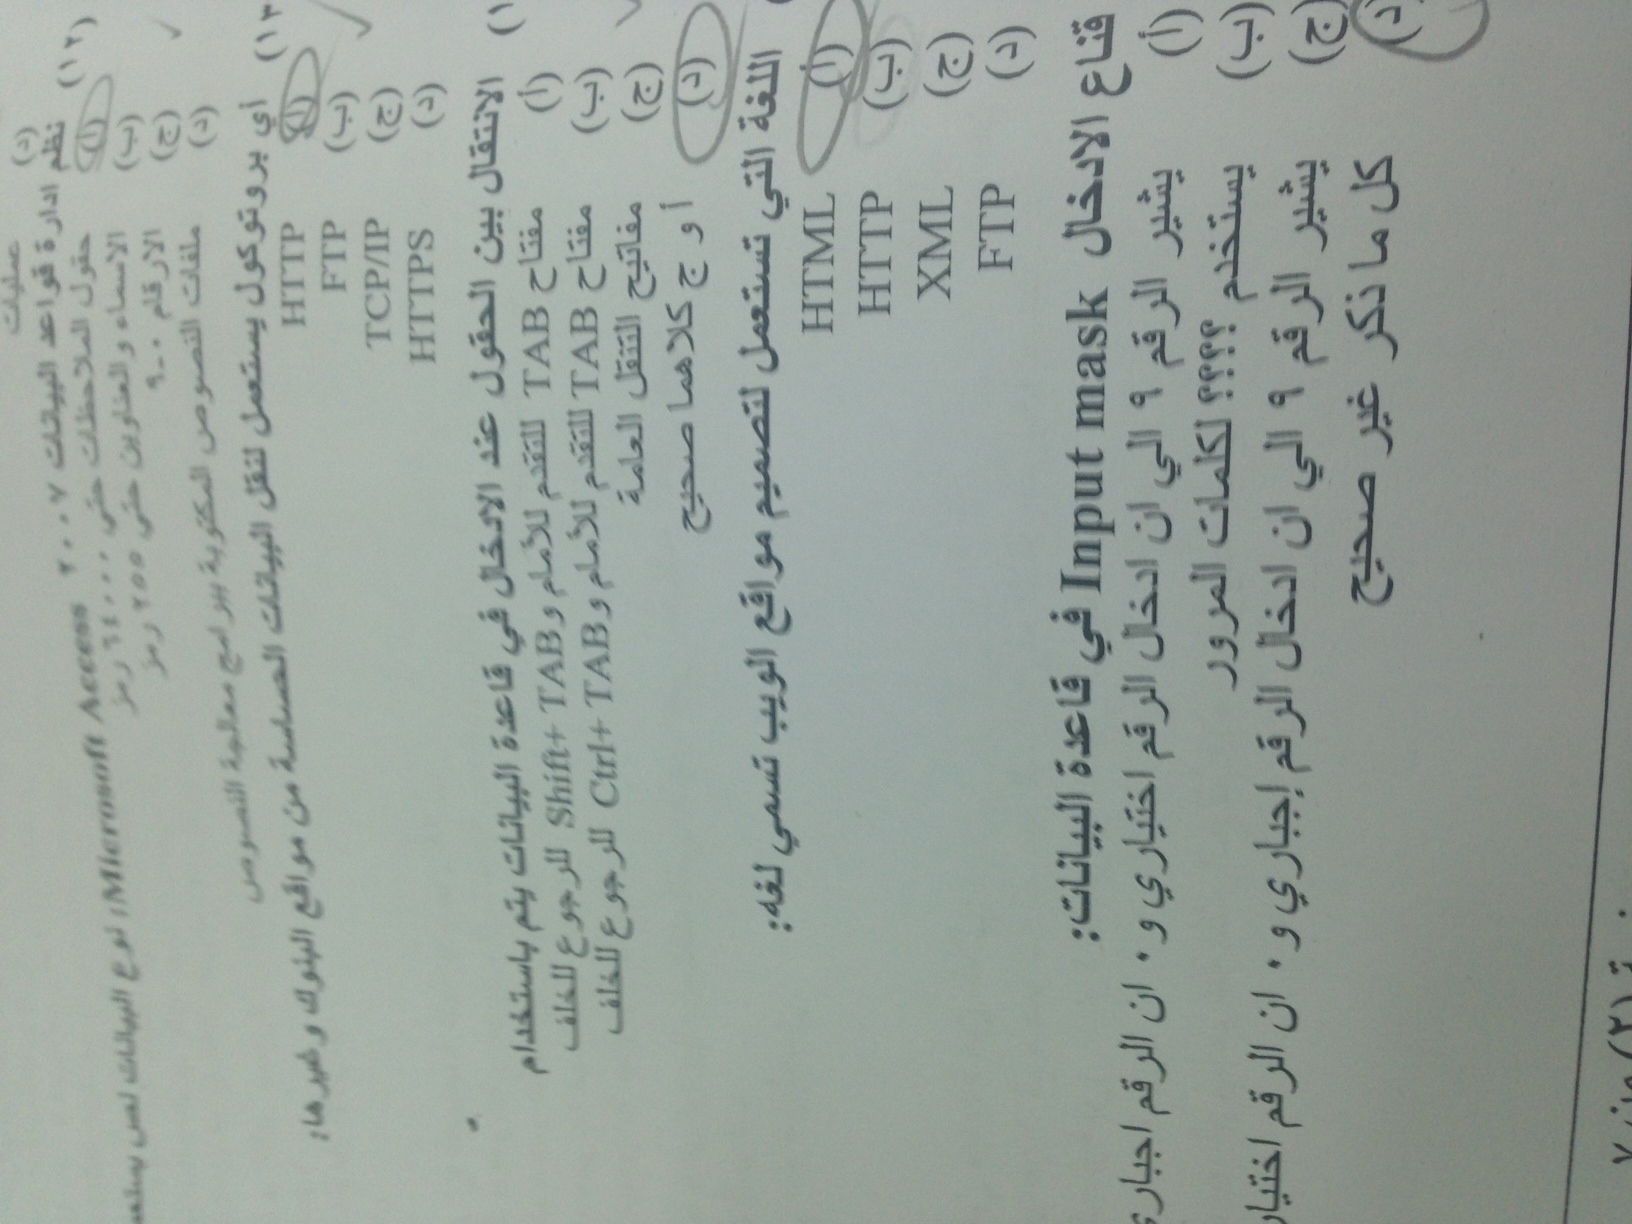 عمليات
(د)
(١٢) نظم ادارة قواعد البيانات Microsoft Access ٢٠٠٧؛ نوع البيانات نص يستعمل
(أ) حقول الملاحظات حتى ٦٤٠٠٠ رمز
(ب) الاسماء والعناوين حتى ٢٥٥ رمز
(ج) الارقام ٠-٩
(د) ملفات النصوص المكتوبة ببرامج معالجة النصوص
(١٣ أي بروتوكول يستعمل لنقل البيانات الحساسة من مواقع البنوك وغيرها:
(أ) HTTP
(ب) FTP
(ج) TCP/IP
(د) HTTPS
(١ الانتقال بين الحقول عند الادخال في قاعدة البيانات يتم باستخدام
(أ) مفتاح TAB للتقدم للأمام و Shift+ TAB للرجوع للخلف
(ب) مفتاح TAB للتقدم للأمام و Ctrl+ TAB للرجوع للخلف
(ج) مفاتيح التنقل العامة
(د) أ و ج كلاهما صحيح
اللغة التي تستعمل لتصميم مواقع الويب تسمي لغه:
(أ) HTML
(ب) HTTP
(ج) XML
(د) FTP
قناع الادخال Input mask في قاعدة البيانات:
(أ) يشير الرقم ٩ الي ان ادخال الرقم اختياري و ٠ ان الرقم اجباري
(ب) يستخدم ؟؟؟؟ لكلمات المرور
(ج) يشير الرقم ٩ الي ان ادخال الرقم إجباري و ٠ ان الرقم اختيار
(د) كل ما ذكر غير صحيح
(٢) من ٧